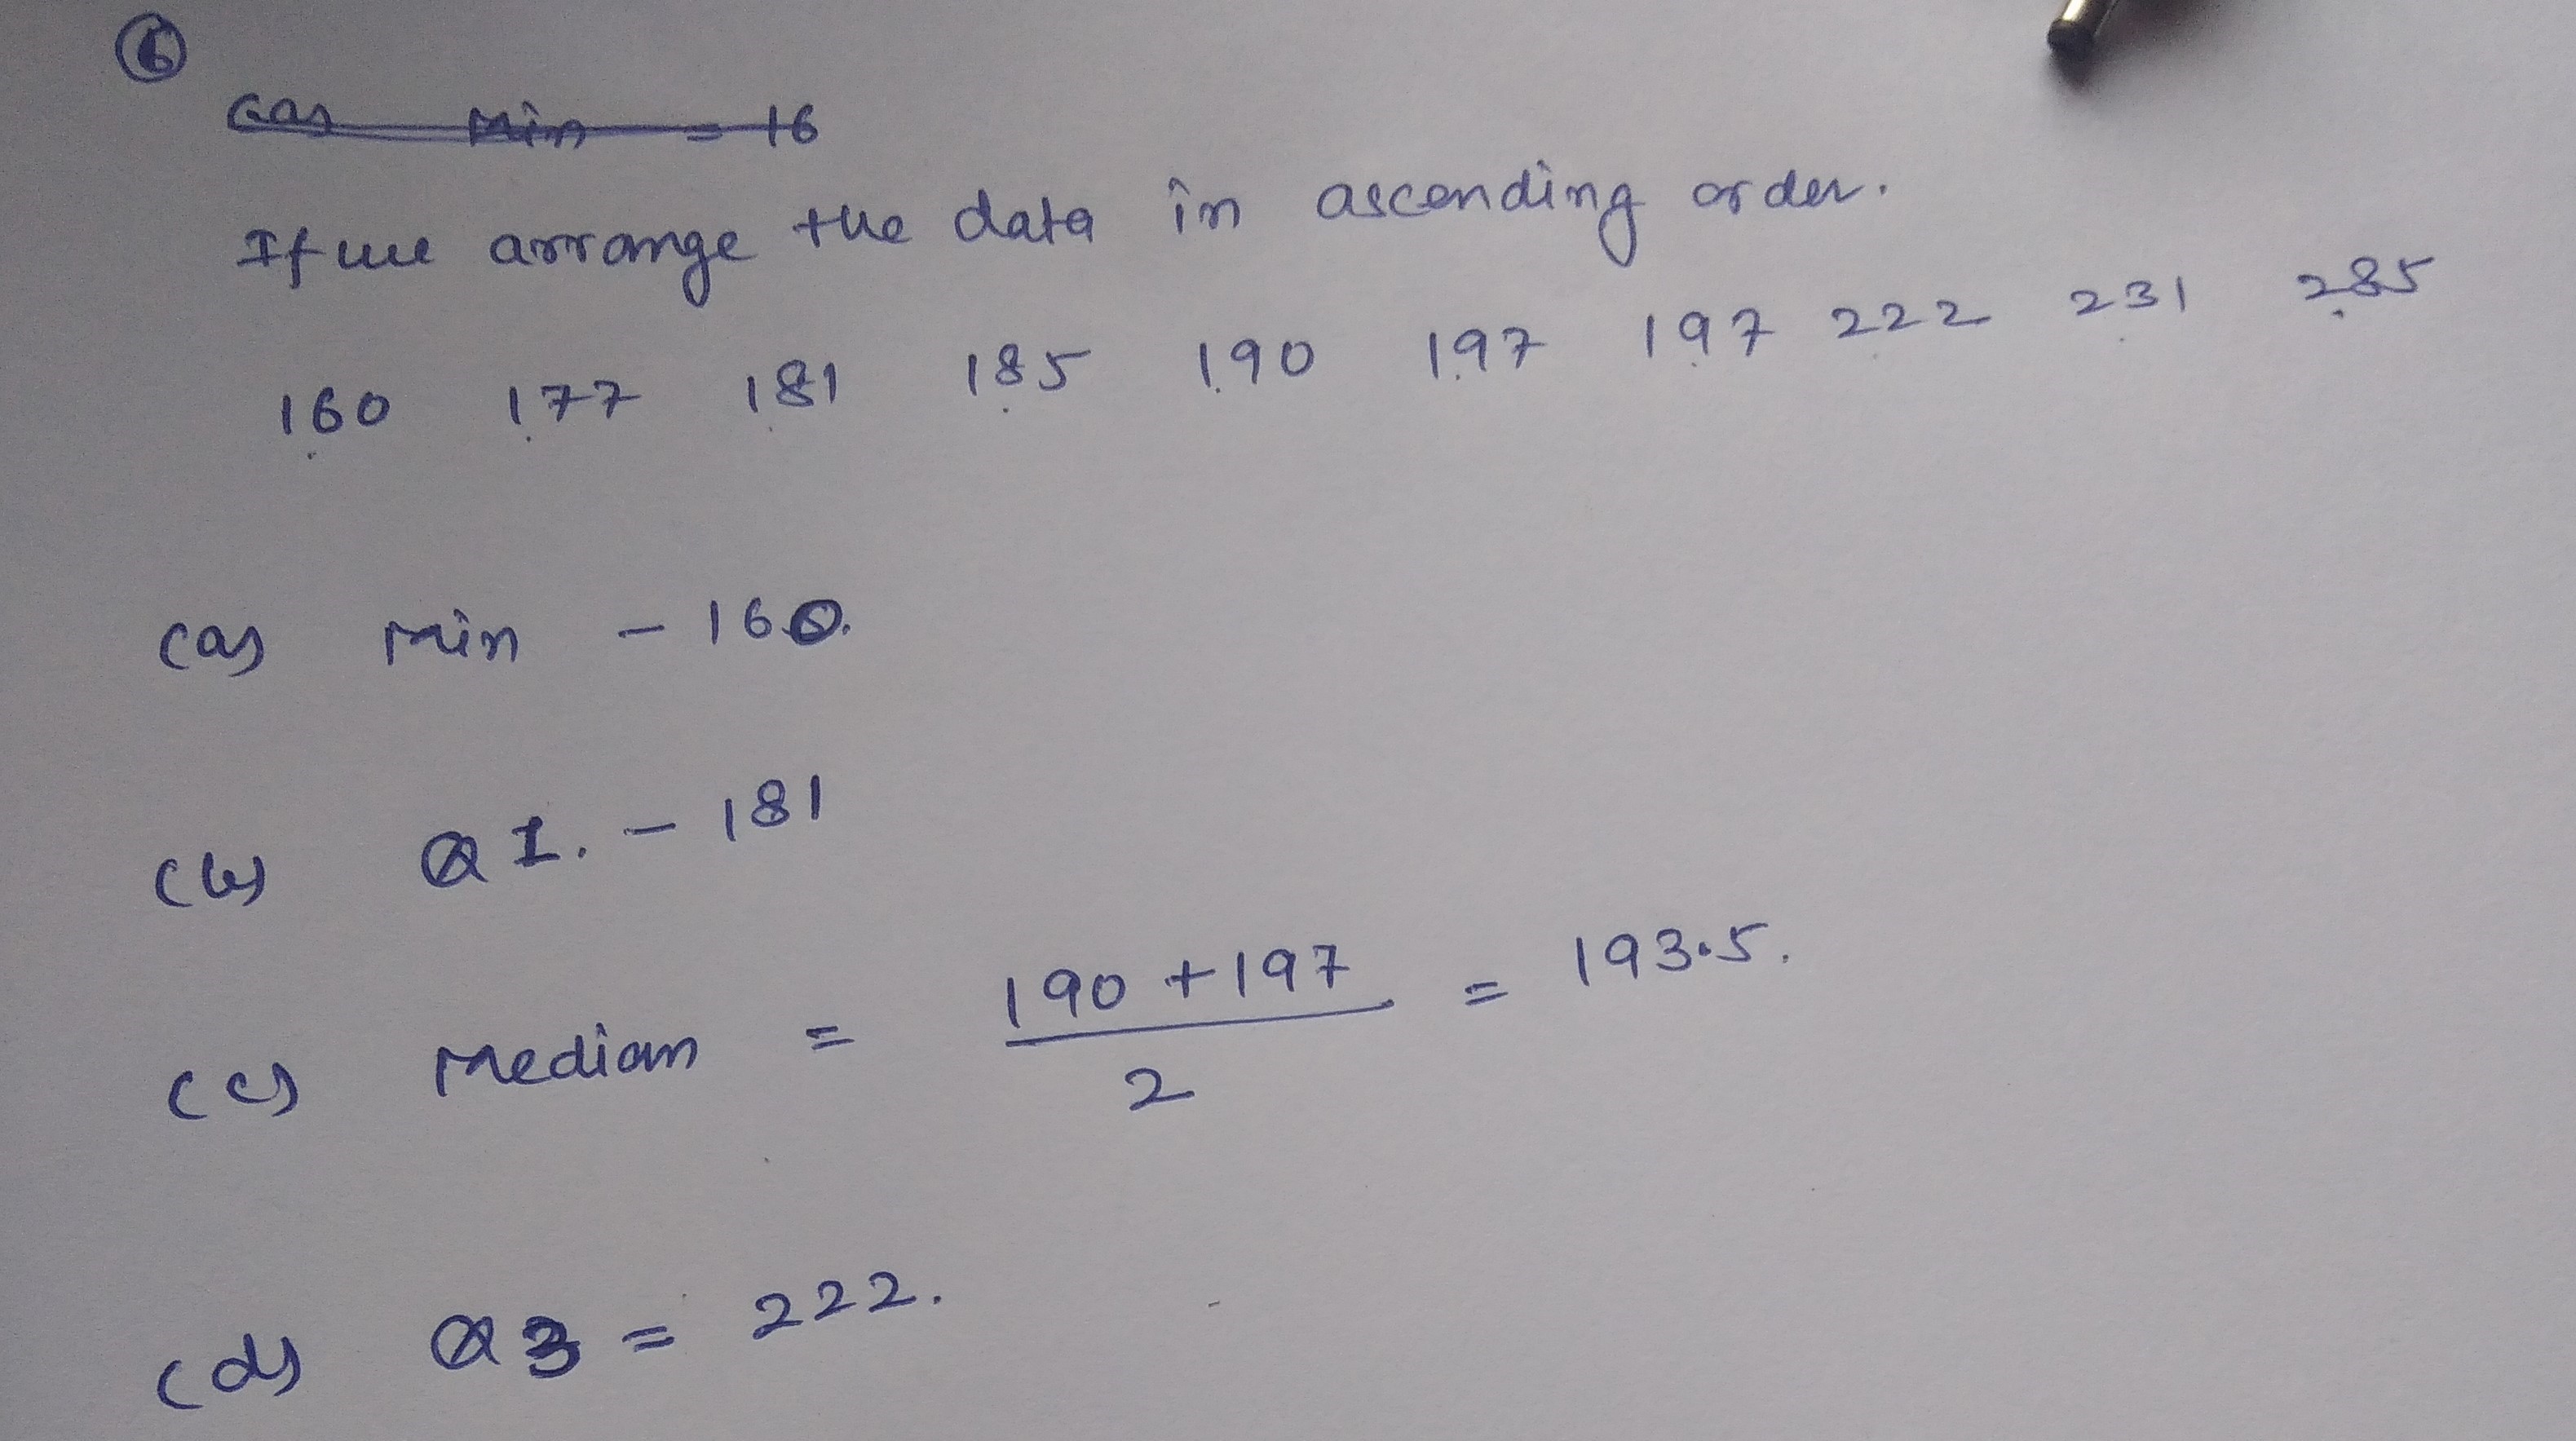 6
(a) Min = 16
If we arrange the data in ascending order.
160 177 181 185 190 197 197 222 231 285
(a) Min - 160.
(b) Q1. - 181
(c) Median = 190 + 197 / 2 = 193.5.
(d) Q3 = 222.